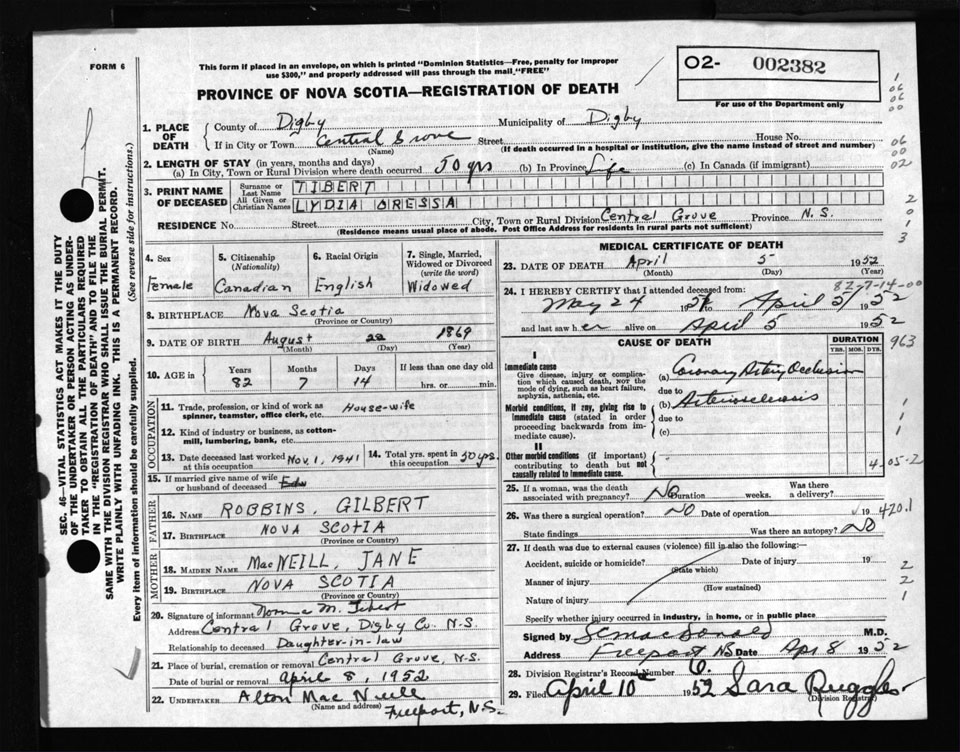 FORM 6
This form if placed in an envelope, on which is printed "Dominion Statistics—Free, penalty for improper
use $300," and properly addressed will pass through the mail "FREE"
02- 002382
For use of the Department only
PROVINCE OF NOVA SCOTIA—REGISTRATION OF DEATH
1. PLACE OF DEATH
County of Digby Municipality of Digby
If in City or Town Central Grove Street House No.
(Name) (If death occurred in a hospital or institution, give the name instead of street and number)
2. LENGTH OF STAY (in years, months and days)
(a) In City, Town or Rural Division where death occurred 50 yrs (b) In Province Life (c) In Canada (if immigrant)
3. PRINT NAME OF DECEASED
Surname or Last Name TIBERT
All Given or Christian Names LYDIA ORESSA
RESIDENCE No. Street City, Town or Rural Division Central Grove Province N.S.
(Residence means usual place of abode. Post Office Address for residents in rural parts not sufficient)
4. Sex
Female
5. Citizenship
(Nationality)
Canadian
6. Racial Origin
English
7. Single, Married,
Widowed or Divorced
(write the word)
Widowed
8. BIRTHPLACE Nova Scotia
(Province or Country)
9. DATE OF BIRTH August 22 1869
(Month) (Day) (Year)
10. AGE in Years Months Days If less than one day old
82 7 14 hrs. or min.
OCCUPATION
11. Trade, profession, or kind of work as House-wife
spinner, teamster, office clerk, etc.
12. Kind of industry or business, as cotton-
mill, lumbering, bank, etc.
13. Date deceased last worked at this occupation Nov. 1, 1941
14. Total yrs. spent in this occupation 50 yrs.
15. If married give name of wife
or husband of deceased
FATHER
16. NAME ROBBINS, GILBERT
17. BIRTHPLACE NOVA SCOTIA
(Province or Country)
MOTHER
18. MAIDEN NAME MacNEILL, JANE
19. BIRTHPLACE NOVA SCOTIA
(Province or Country)
20. Signature of informant Norma M. Tibert
Address Central Grove, Digby Co. N.S.
Relationship to deceased Daughter-in-law
21. Place of burial, cremation or removal Central Grove, N.S.
Date of burial or removal April 8, 1952
22. UNDERTAKER Alton MacNeill
(Name and address) Freeport, N.S.
MEDICAL CERTIFICATE OF DEATH
23. DATE OF DEATH April 5 1952
(Month) (Day) (Year)
82-7-14-00
24. I HEREBY CERTIFY that I attended deceased from:
May 24 1951 to April 5/ 1952
and last saw her alive on April 5 1952
CAUSE OF DEATH
DURATION
YRS. MOS. DYS.
963
I
Immediate cause
Give disease, injury or complica-
tion which caused death, NOT the
mode of dying, such as heart failure,
asphyxia, asthenia, etc.
(a) Coronary Artery Occlusion
due to
Morbid conditions, if any, giving rise to
immediate cause (stated in order
proceeding backwards from im-
mediate cause).
(b) Arteriosclerosis
due to
(c)
II
Other morbid conditions (if important)
contributing to death but not
causally related to immediate cause.
4-05-2
25. If a woman, was the death Was there
associated with pregnancy? NO Duration weeks. a delivery?
26. Was there a surgical operation? NO Date of operation 19
420.1
State findings Was there an autopsy? NO
27. If death was due to external causes (violence) fill in also the following:—
Accident, suicide or homicide? Date of injury 19
(State which)
Manner of injury
(How sustained)
Nature of injury
Specify whether injury occurred in industry, in home, or in public place
Signed by M.D.
Address Freeport NS Date Apr 8 1952
28. Division Registrar's Record Number 6.
29. Filed April 10th 1952 Sara Ruggles
(Division Registrar)
SEC. 46—VITAL STATISTICS ACT MAKES IT THE DUTY
OF THE UNDERTAKER OR PERSON ACTING AS UNDER-
TAKER TO OBTAIN ALL THE PARTICULARS REQUIRED
IN THE "REGISTRATION OF DEATH" AND TO FILE THE
SAME WITH THE DIVISION REGISTRAR WHO SHALL ISSUE THE BURIAL PERMIT.
WRITE PLAINLY WITH UNFADING INK. THIS IS A PERMANENT RECORD.
Every item of information should be carefully supplied. (See reverse side for instructions.)
1
06
06
00
06
00
02
2
0
1
3
1
1
1
2
2
1